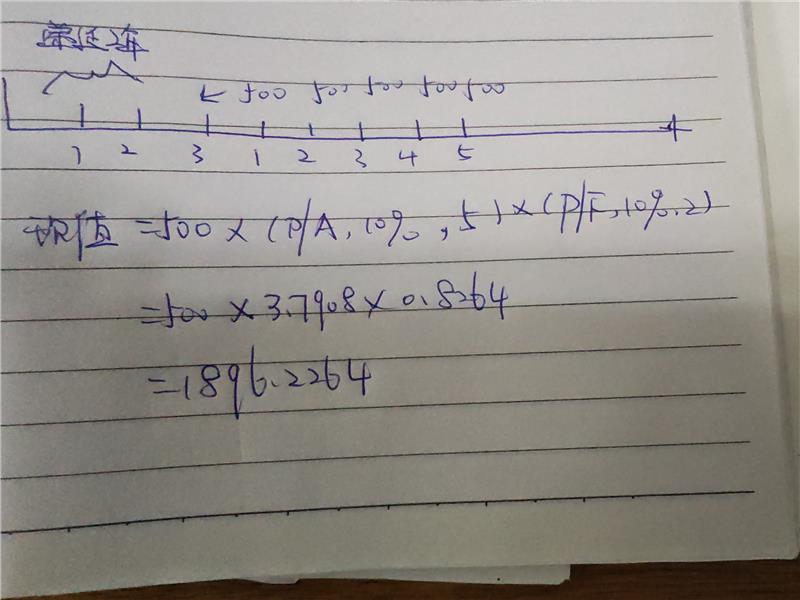 ← 500 500 500 500 500
1 2 3 1 2 3 4 5
现值 =500×(P/A,10%,5)×(P/F,10%.2)
=500×3.7908×0.8264
=1896.2264